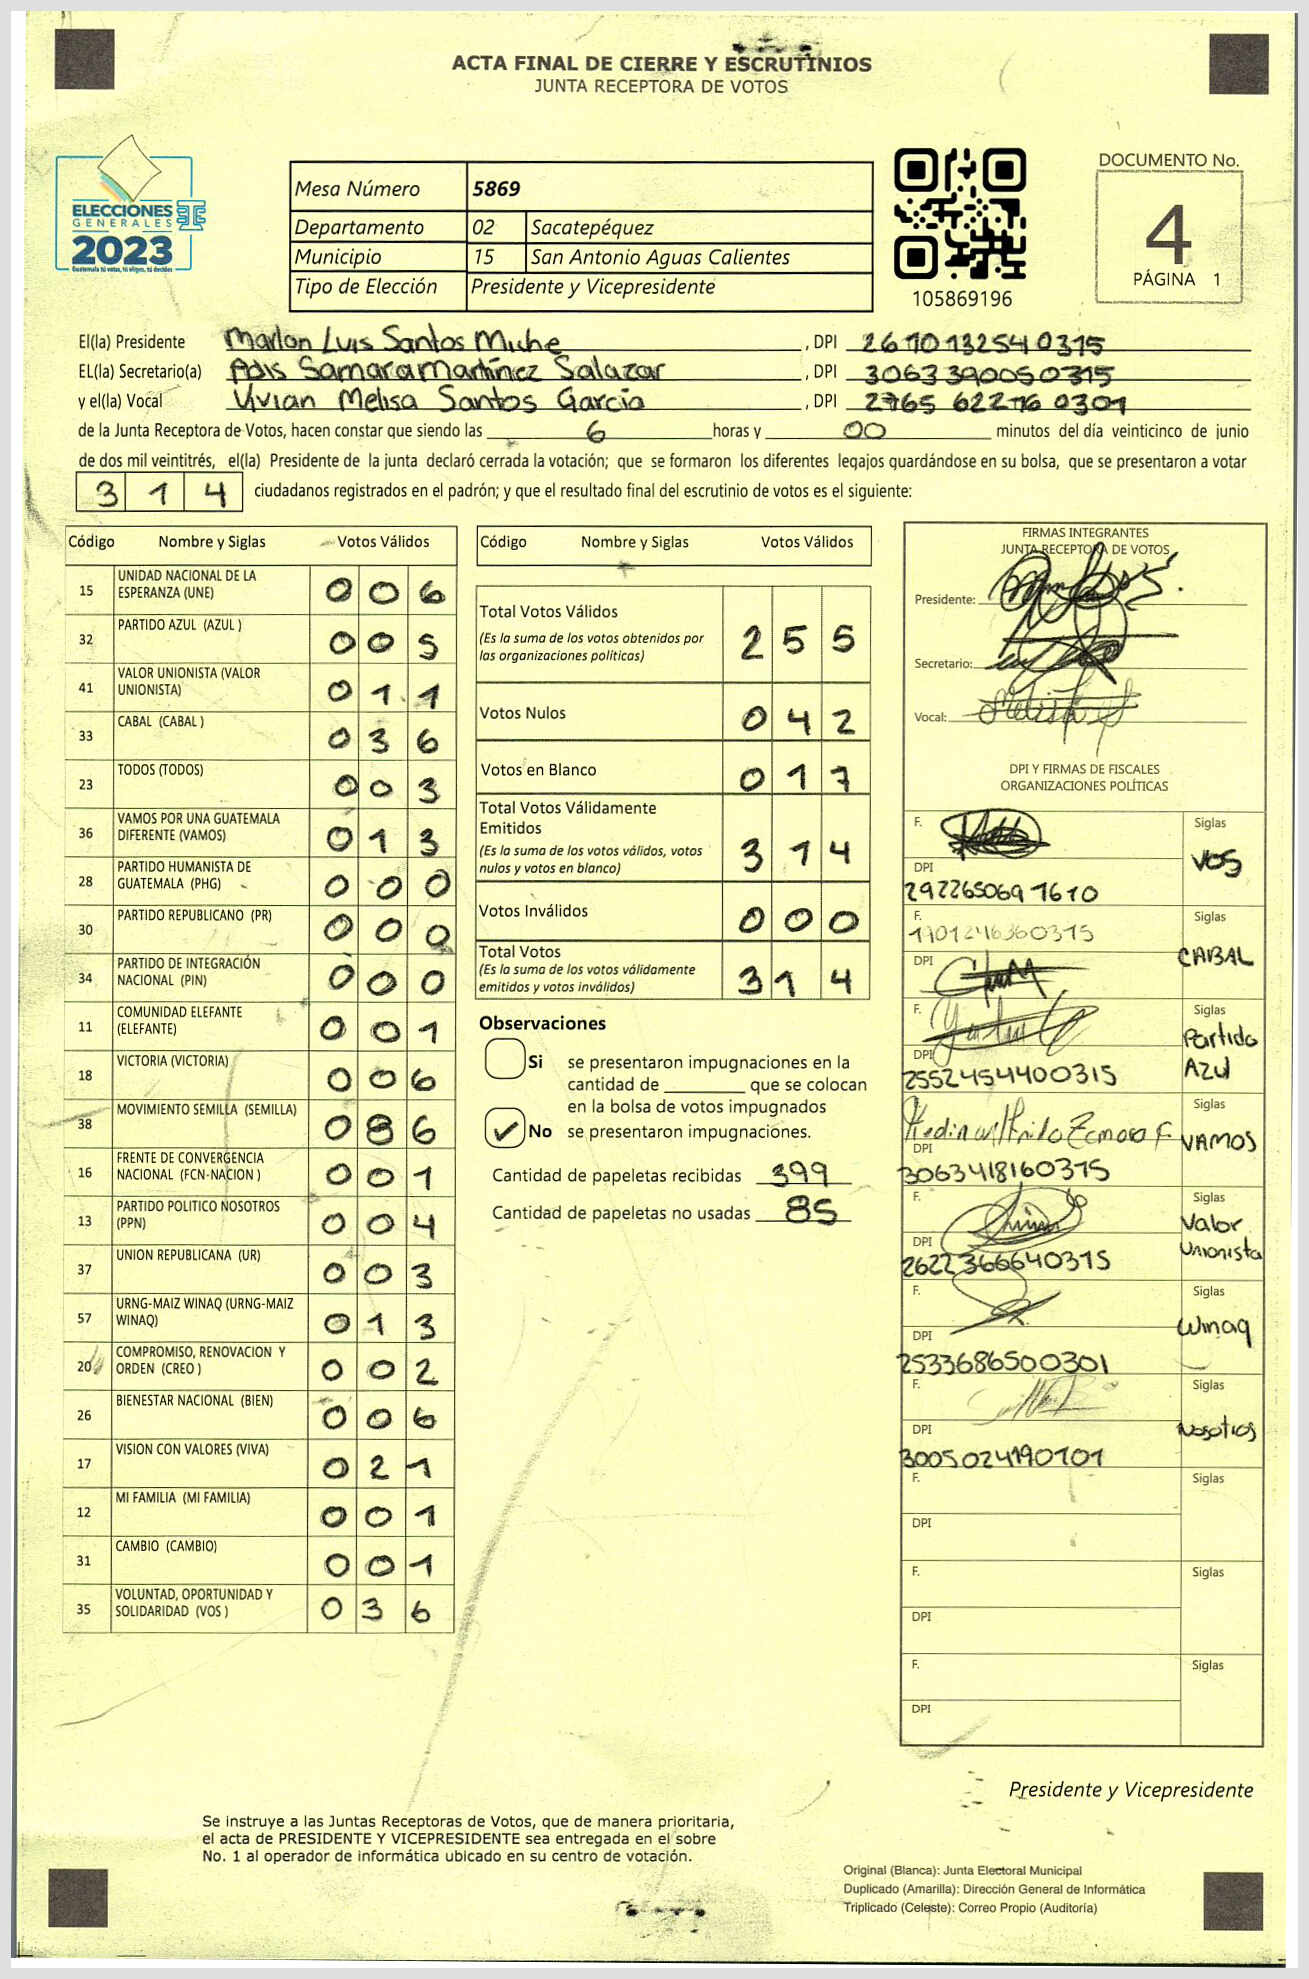 ACTA FINAL DE CIERRE Y ESCRUTINIOS
JUNTA RECEPTORA DE VOTOS
ELECCIONES
GENERALES
2023
Guatemala tú votas, tú eliges, tú decides
Mesa Número 5869
Departamento 02 Sacatepéquez
Municipio 15 San Antonio Aguas Calientes
Tipo de Elección Presidente y Vicepresidente
105869196
DOCUMENTO No.
4
PÁGINA 1
El(la) Presidente Marlon Luis Santos Miche, DPI 2610132540315
EL(la) Secretario(a) Adis Samara Martínez Salazar, DPI 3063390050315
y el(la) Vocal Vivian Melisa Santos García, DPI 2765 62276 0301
de la Junta Receptora de Votos, hacen constar que siendo las 6 horas y 00 minutos del día veinticinco de junio
de dos mil veintitrés, el(la) Presidente de la junta declaró cerrada la votación; que se formaron los diferentes legajos guardándose en su bolsa, que se presentaron a votar
314 ciudadanos registrados en el padrón; y que el resultado final del escrutinio de votos es el siguiente:
Código Nombre y Siglas Votos Válidos
15 UNIDAD NACIONAL DE LA ESPERANZA (UNE) 006
32 PARTIDO AZUL (AZUL ) 005
41 VALOR UNIONISTA (VALOR UNIONISTA) 011
33 CABAL (CABAL ) 036
23 TODOS (TODOS) 003
36 VAMOS POR UNA GUATEMALA DIFERENTE (VAMOS) 013
28 PARTIDO HUMANISTA DE GUATEMALA (PHG) 000
30 PARTIDO REPUBLICANO (PR) 000
34 PARTIDO DE INTEGRACIÓN NACIONAL (PIN) 000
11 COMUNIDAD ELEFANTE (ELEFANTE) 001
18 VICTORIA (VICTORIA) 006
38 MOVIMIENTO SEMILLA (SEMILLA) 086
16 FRENTE DE CONVERGENCIA NACIONAL (FCN-NACION ) 001
13 PARTIDO POLITICO NOSOTROS (PPN) 004
37 UNION REPUBLICANA (UR) 003
57 URNG-MAIZ WINAQ (URNG-MAIZ WINAQ) 013
20 COMPROMISO, RENOVACION Y ORDEN (CREO ) 002
26 BIENESTAR NACIONAL (BIEN) 006
17 VISION CON VALORES (VIVA) 021
12 MI FAMILIA (MI FAMILIA) 001
31 CAMBIO (CAMBIO) 001
35 VOLUNTAD, OPORTUNIDAD Y SOLIDARIDAD (VOS ) 036
Código Nombre y Siglas Votos Válidos
Total Votos Válidos 255
(Es la suma de los votos obtenidos por
las organizaciones políticas)
Votos Nulos 042
Votos en Blanco 017
Total Votos Válidamente
Emitidos 314
(Es la suma de los votos válidos, votos
nulos y votos en blanco)
Votos Inválidos 000
Total Votos 314
(Es la suma de los votos válidamente
emitidos y votos inválidos)
Observaciones
Si se presentaron impugnaciones en la
cantidad de ________ que se colocan
en la bolsa de votos impugnados
✓ No se presentaron impugnaciones.
Cantidad de papeletas recibidas 399
Cantidad de papeletas no usadas 85
FIRMAS INTEGRANTES
JUNTA RECEPTORA DE VOTOS
Presidente:
Secretario:
Vocal:
DPI Y FIRMAS DE FISCALES
ORGANIZACIONES POLÍTICAS
F. Siglas
VOS
DPI
2922650691610
F. Siglas
CABAL
DPI
F. Siglas
Partido
Azul
DPI
2552454400315
F. Siglas
VAMOS
DPI
3063418160315
F. Siglas
Valor
Unionista
DPI
2622366640315
F. Siglas
Winaq
DPI
2533686500301
F. Siglas
Nosotros
DPI
3005024190101
F. Siglas
DPI
F. Siglas
DPI
F. Siglas
DPI
Presidente y Vicepresidente
Se instruye a las Juntas Receptoras de Votos, que de manera prioritaria,
el acta de PRESIDENTE Y VICEPRESIDENTE sea entregada en el sobre
No. 1 al operador de informática ubicado en su centro de votación.
Original (Blanca): Junta Electoral Municipal
Duplicado (Amarilla): Dirección General de Informática
Triplicado (Celeste): Correo Propio (Auditoría)